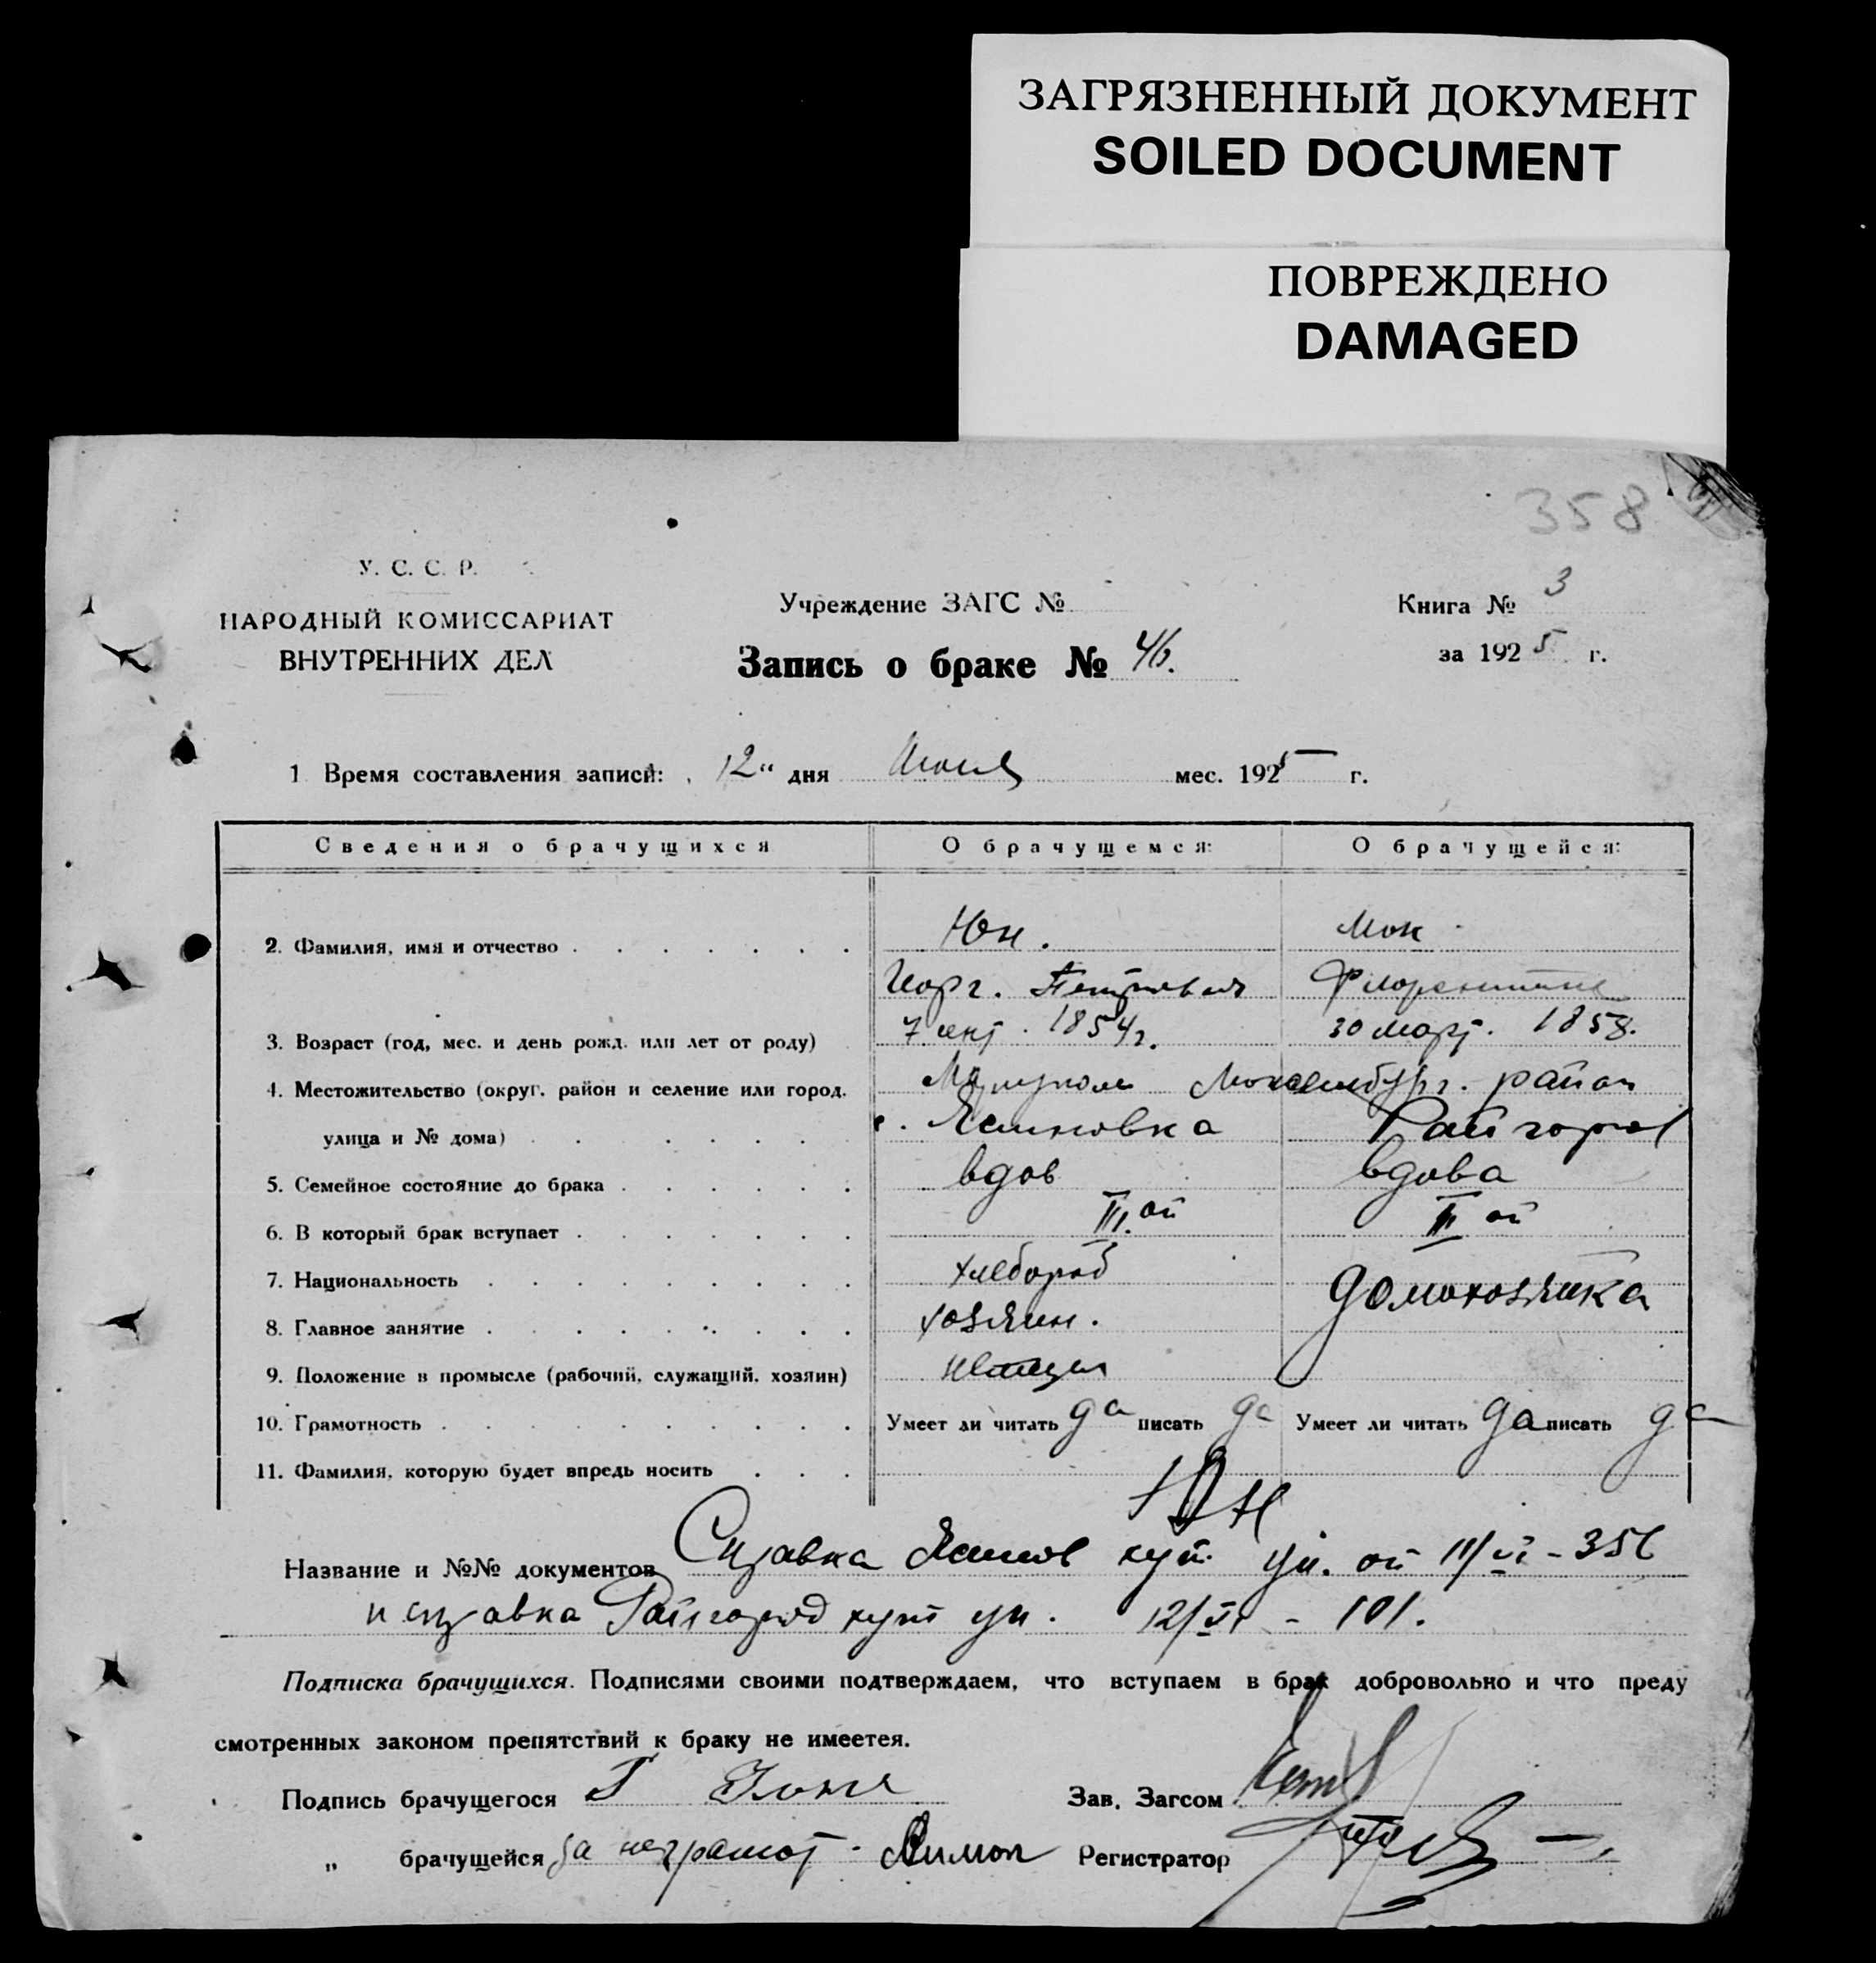 ЗАГРЯЗНЕННЫЙ ДОКУМЕНТ
SOILED DOCUMENT
ПОВРЕЖДЕНО
DAMAGED
358
У. С. С. Р.
НАРОДНЫЙ КОМИССАРИАТ
ВНУТРЕННИХ ДЕЛ
Учреждение ЗАГС №
Запись о браке № 46.
Книга № 3
за 1925 г.
1 Время составления записи: 12" дня Июня мес. 1925 г.
Сведения о брачущихся О брачущемся: О брачущейся:
2. Фамилия, имя и отчество Юн. Мок
Георг. Петрович Флорентина
3. Возраст (год, мес. и день рожд. или лет от роду) 7 сент. 1854 г. 30 март. 1858.
4. Местожительство (округ. район и селение или город, Мариупол Люксембург. район
улица и № дома) Ясиновка Райгород
5. Семейное состояние до брака вдов вдова
6. В который брак вступает III. ой II ой
7. Национальность хлебороб домохозяйка
8. Главное занятие хозяин.
9. Положение в промысле (рабочий, служащий, хозяин) немцы
10. Грамотность Умеет ли читать да писать да Умеет ли читать да писать да
11. Фамилия, которую будет впредь носить Юн
Название и №№ документов Справка Ясинов от 11/VI - 356
и справка Райгород 12/VI - 101.
Подписка брачущихся. Подписями своими подтверждаем, что вступаем в брак добровольно и что преду
смотренных законом препятствий к браку не имеетея.
Подпись брачущегося Зав. Загсом
„ брачущейся за неграмот. Регистратор